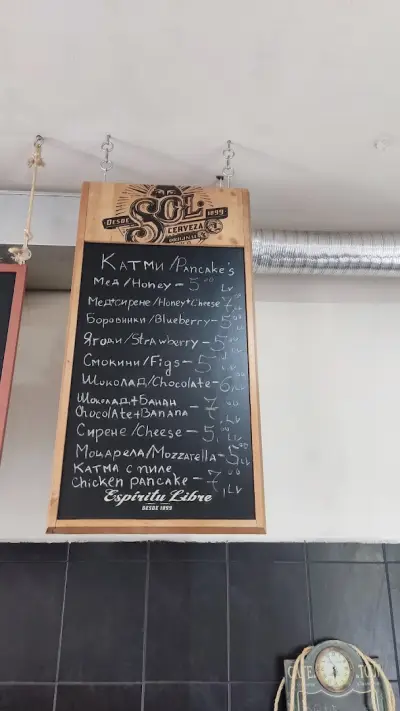 DESDE SOL 1899
CERVEZA
ORIGINAL
КАТМИ / PANCAKE'S
МЕД / HONEY - 5,00 LV
МЕД+СИРЕНЕ / HONEY+CHEESE 7,00 LV
БОРОВИНКИ / BLUEBERRY - 5,00 LV
ЯГОДИ / STRAWBERRY - 5,00 LV
СМОКИНИ / FIGS - 5,00 LV
ШОКОЛАД / CHOCOLATE - 6,00 LV
ШОКОЛАД+БАНАН
CHOCOLATE+BANANA - 7,00 LV
СИРЕНЕ / CHEESE - 5,00 LV
МОЦАРЕЛА / MOZZARELLA - 5,00 LV
КАТМА С ПИЛЕ
CHICKEN PANCAKE - 7,00 LV
Espíritu Libre
DESDE 1899